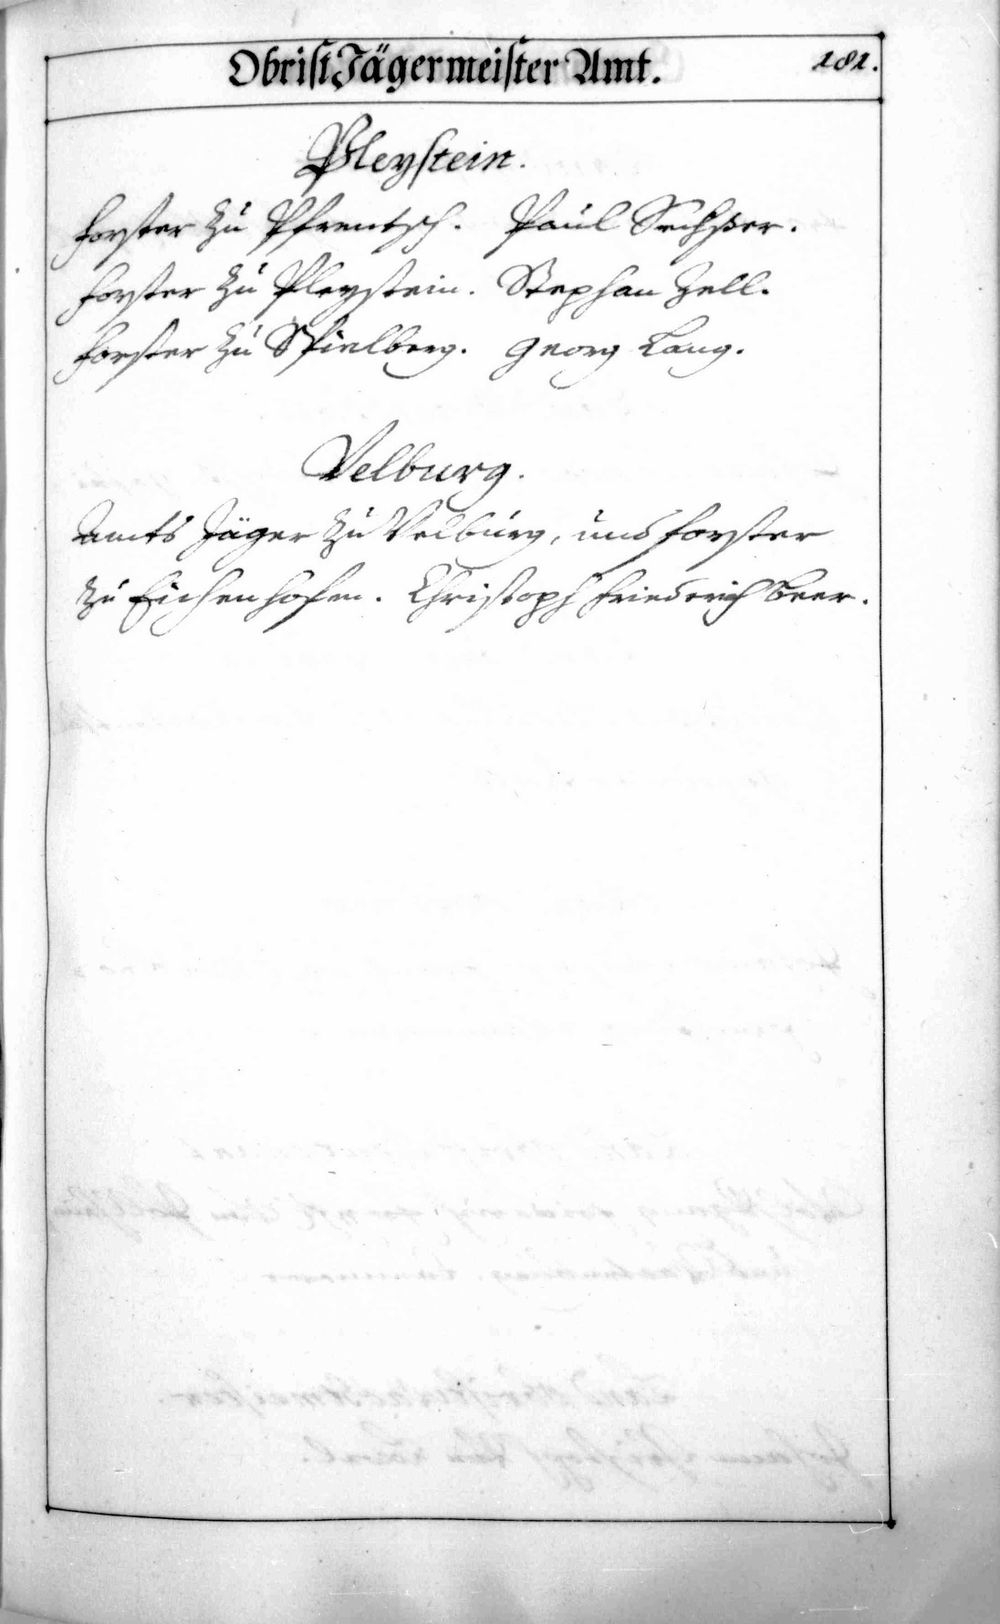 Obrist Jägermeister Amt. 181.
Pleystein.
Forster zu Pfrentsch. Paul
Forster zu Pleystein. Stephan Zell.
Forster zu Spielberg. Georg Lang.
Velburg.
Amts Jäger zu Velburg, und Forster
zu Eichenhofen. Christoph Friederich Beer.